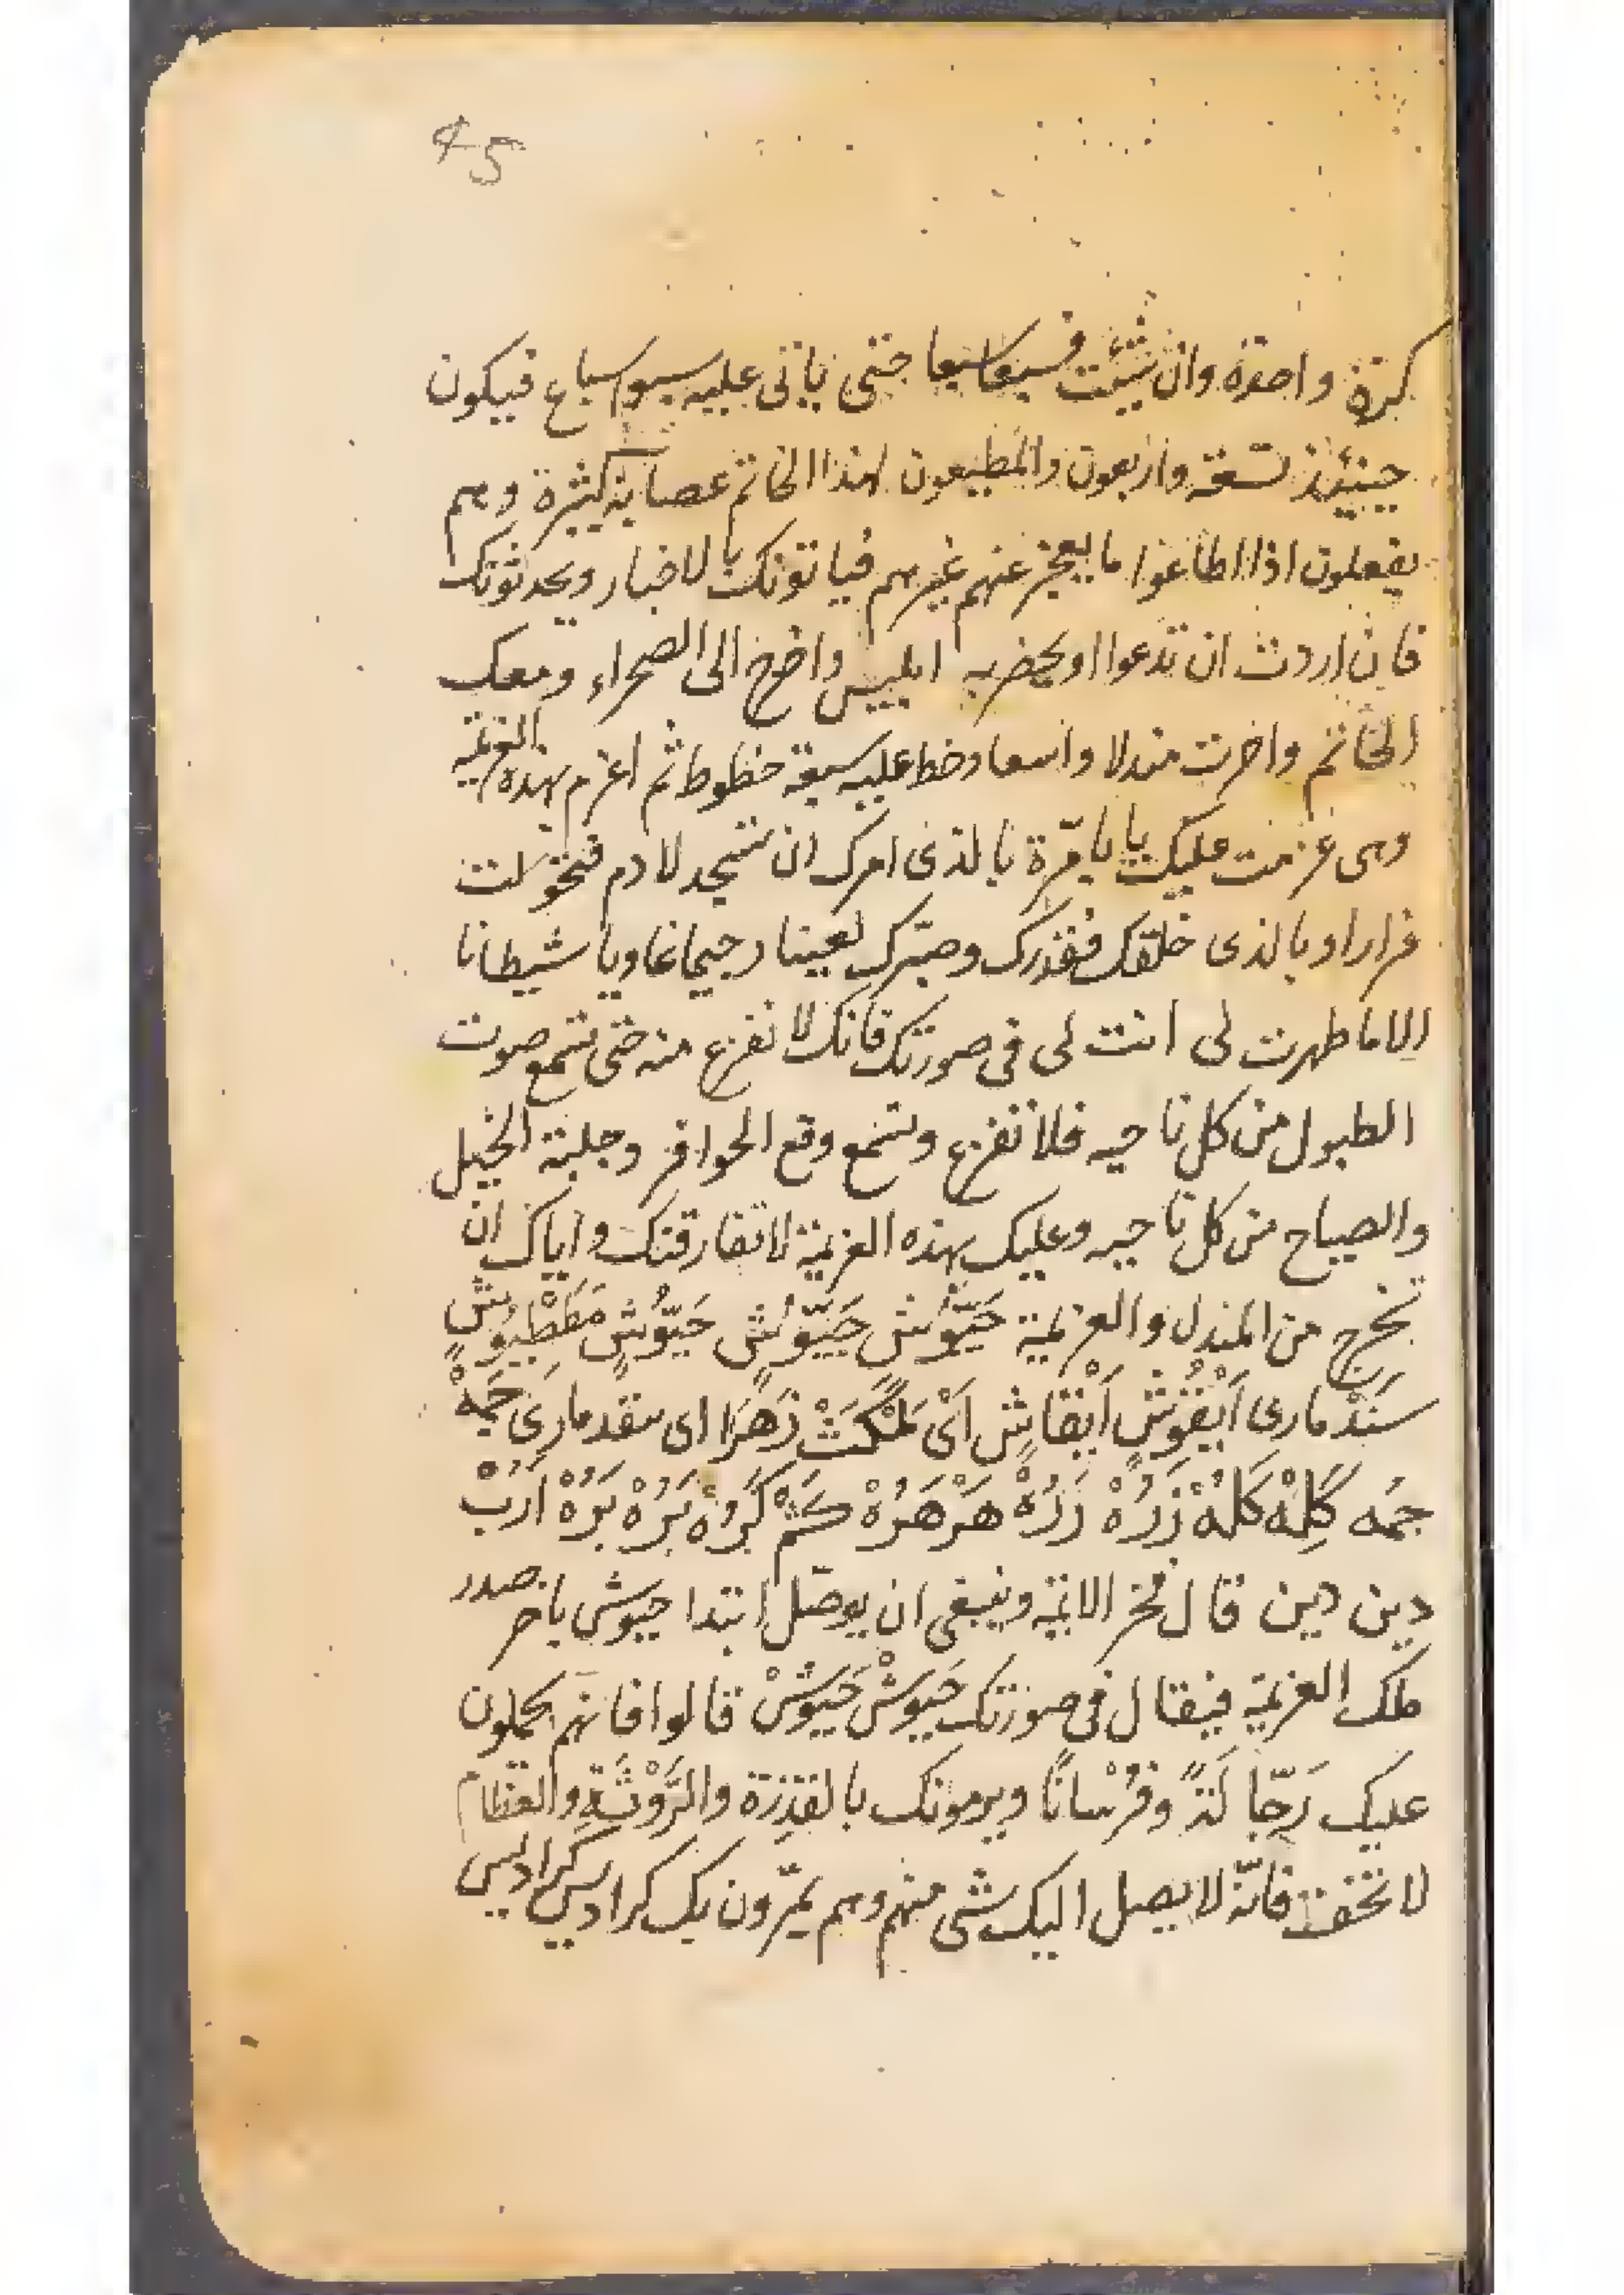 45
كرة واحدة وان شئت فسبعا سبعا حتى ياتى عليه سبوا سباع فيكون
حينئذ تسعة واربعون والمطيعون لهذا الخاتم عصابة كثيرة وهم
يفعلون اذا اطاعوا ما يعجز عنهم غيرهم فياتونك بالاخبار ويحدثونك
فان اردت ان تدعوا او تحضر به ابليس واخرج الى الصحراء ومعك
الخاتم واخرت مندلا واسعا وخط عليه سبعة خطوط ثم اعزم بهذه العزيمة
وهى عزمت عليك يا بامرة بالذى امرك ان تسجد لادم فتحولت
فرارا وبالذى خلقك فقدرك وصيرك لعينا رجيما غاويا شيطانا
الا ما ظهرت لى انت لى فى صورتك فانك لا تفزع منه حتى تسمع صوت
الطبول من كل ناحيه فلا تفزع وتسمع وقع الحوافر وجلبة الخيل
والصياح من كل ناحيه وعليك بهذه العزيمة لا تفارقنك واياك ان
تخرج من المندل والعزيمة حَيّوُش حَيّوُش حَيّوُشٍ مَطَطْيوُش
سَنَدْ مارى اَبْقُوشٍ اَبْقاشٍ اَىْ مَلَكَتْ زَهَرَا اى سقد مارِىَ جَمَهْ
جمُه كَلِمْهُ كَلَمْهُ زَرُهْ زَرُهْ هَرْهَرُهْ كَتْم كَرُهْ بَرُهْ بَرُهْ اَرَبْ
دين دين قال فخر الائمة وينبغى ان يوصل ابتدا حيوش باخر صدر
ملك العزيمة فيقال فى صورتك حَيَوشْ حَيَوُشْ قالوا فانهم يحملون
عليك رَجّالَةً وفُرْسانًا ويرمونك بالقذرة والرَّوْثَةِ والعظام
لا تخف فانّه لا يصل اليك شى منهم وهم يمرّون بك كراديس كراديس